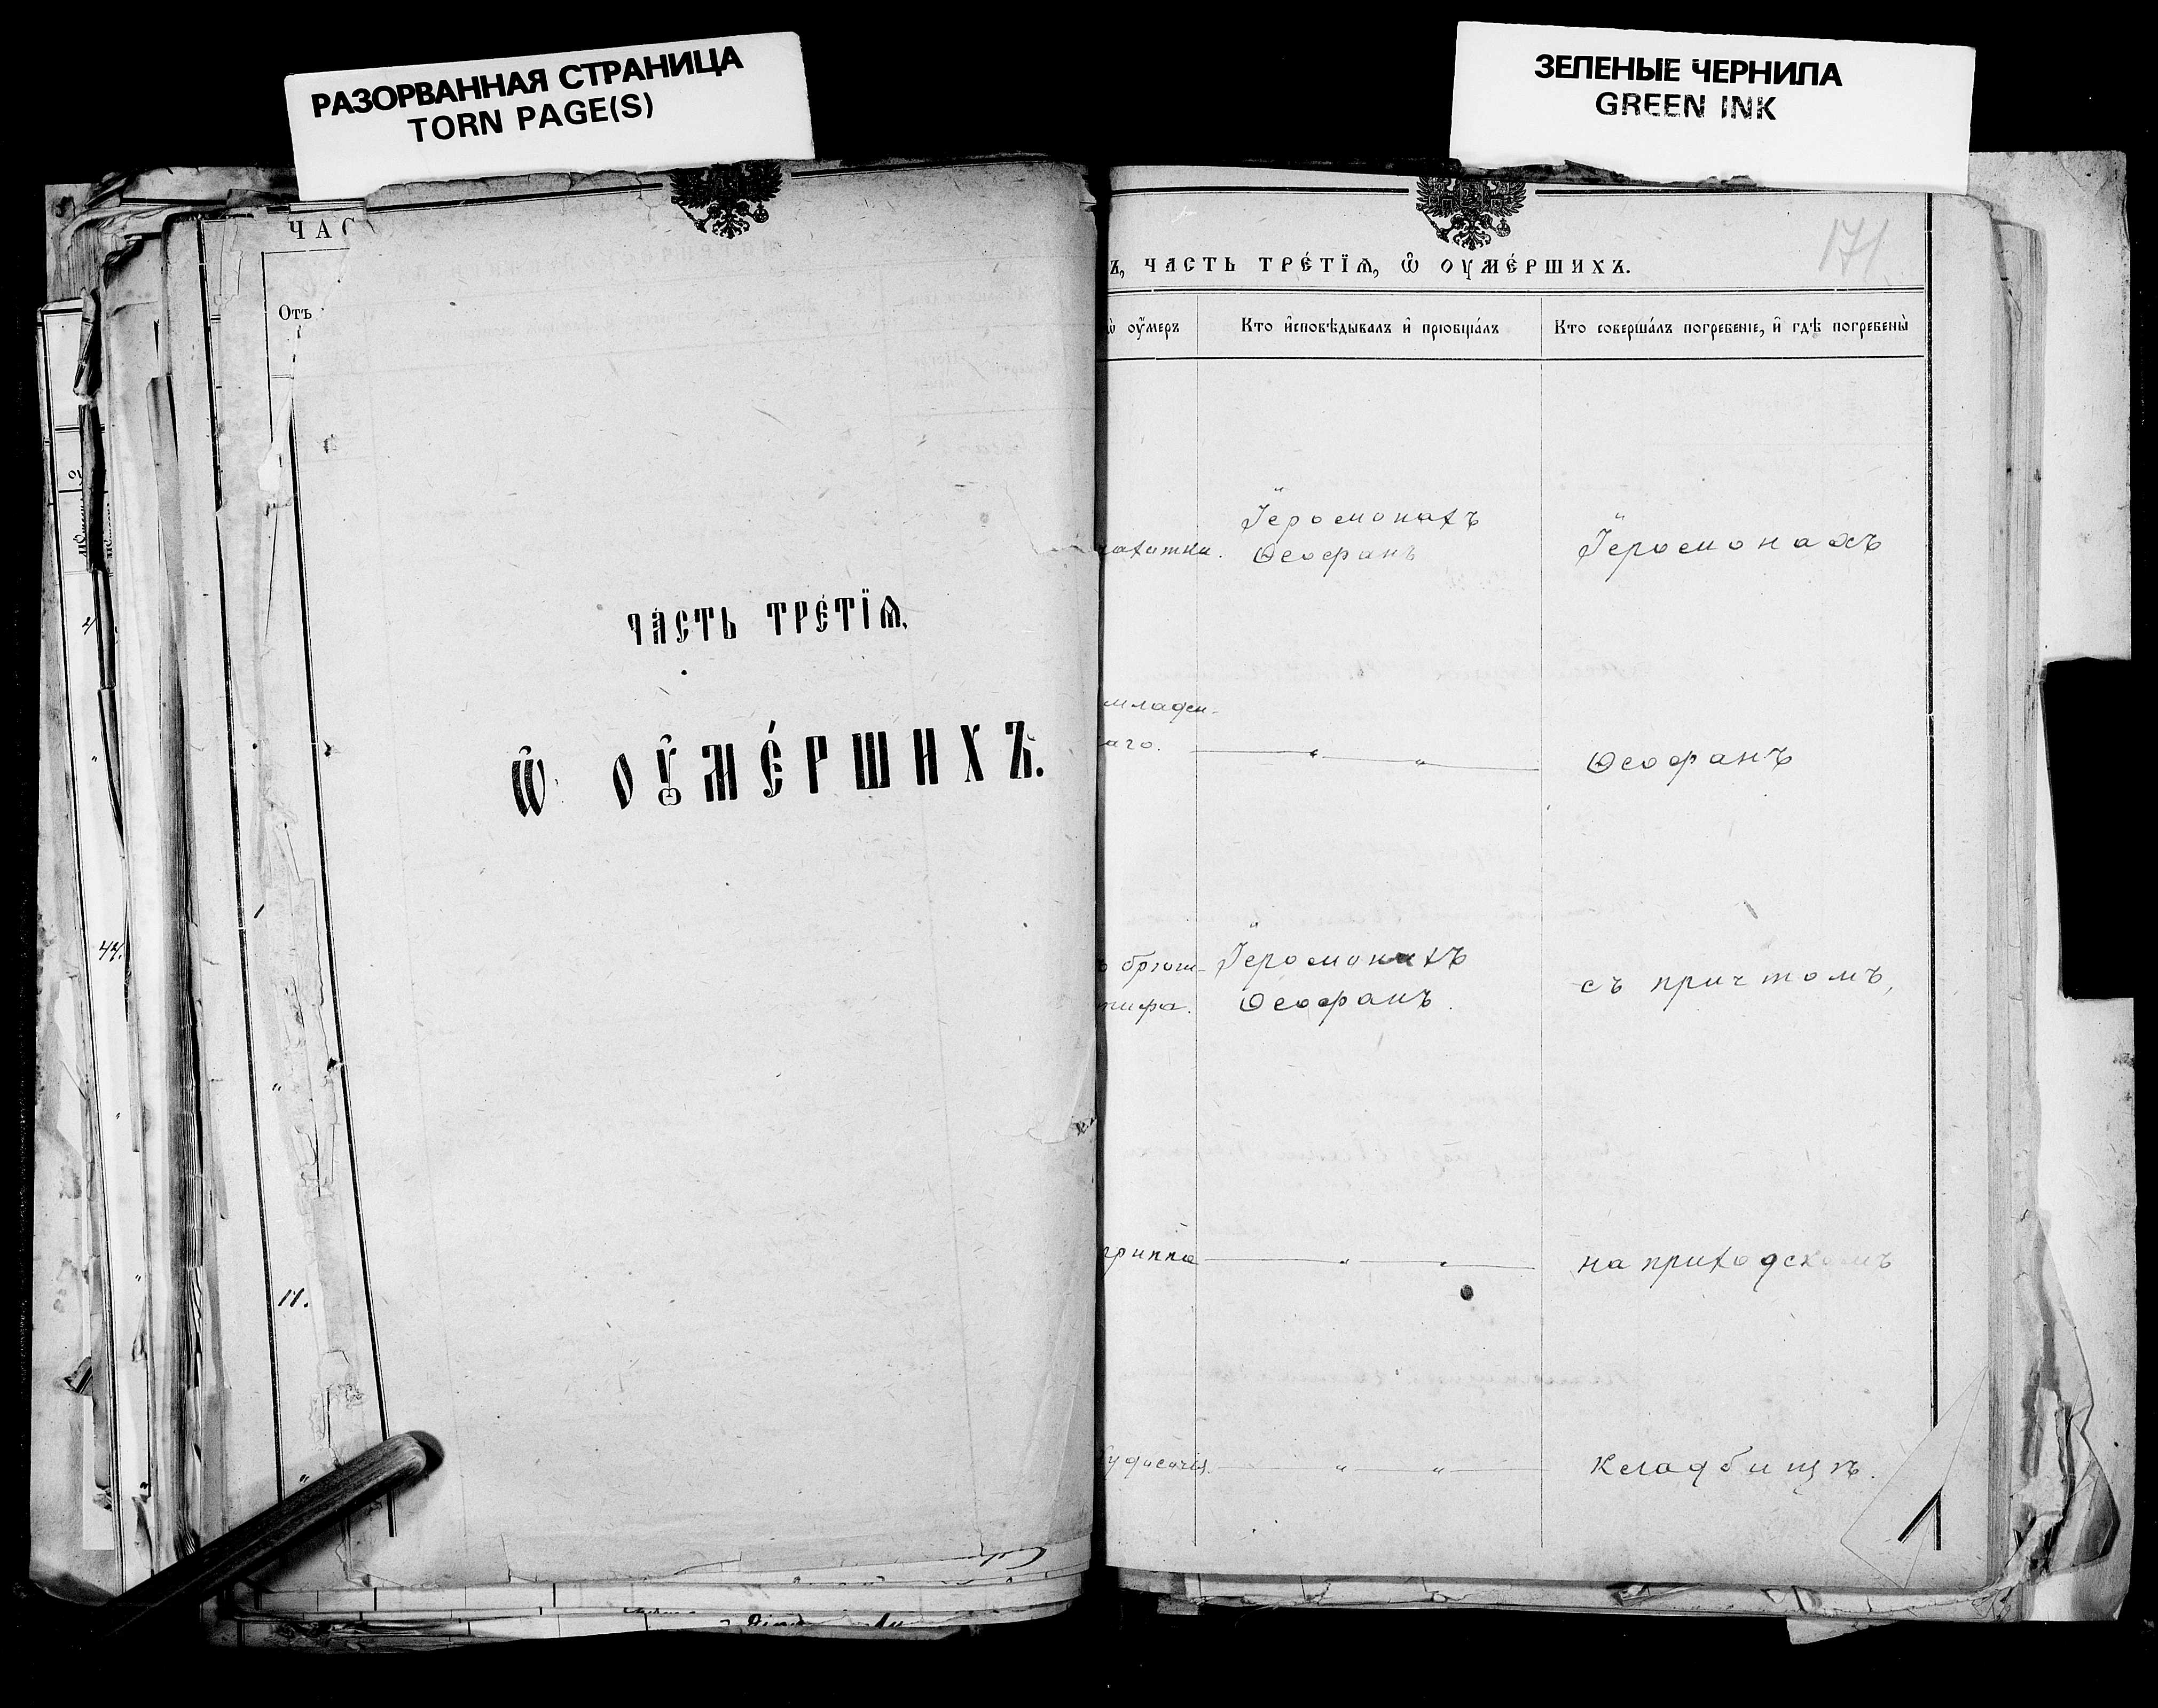 РАЗОРВАННАЯ СТРАНИЦА
TORN PAGE(S)
ЗЕЛЕНЫЕ ЧЕРНИЛА
GREEN INK
ЧАС
Отъ
44.
11.
ча́сть тре́тїѧ,
ѽ оу҆ме́ршихъ.
171
ъ, часть тре́тїѧ, ѽ оуме́ршихъ.
оу҆меръ
Кто и҆сповѣдывалъ и҆ прїобща́лъ
Кто соверша́лъ погребенїе, и҆ гдѣ погребены̀
чахотки.
Іеромонахъ
Ѳеофанъ
Іеромонахъ
младен-
аго.
Ѳеофанъ
брюш-
тифа.
Іеромонахъ
Ѳеофанъ.
съ причтомъ,
гриппа
на приходскомъ
кладбищѣ.